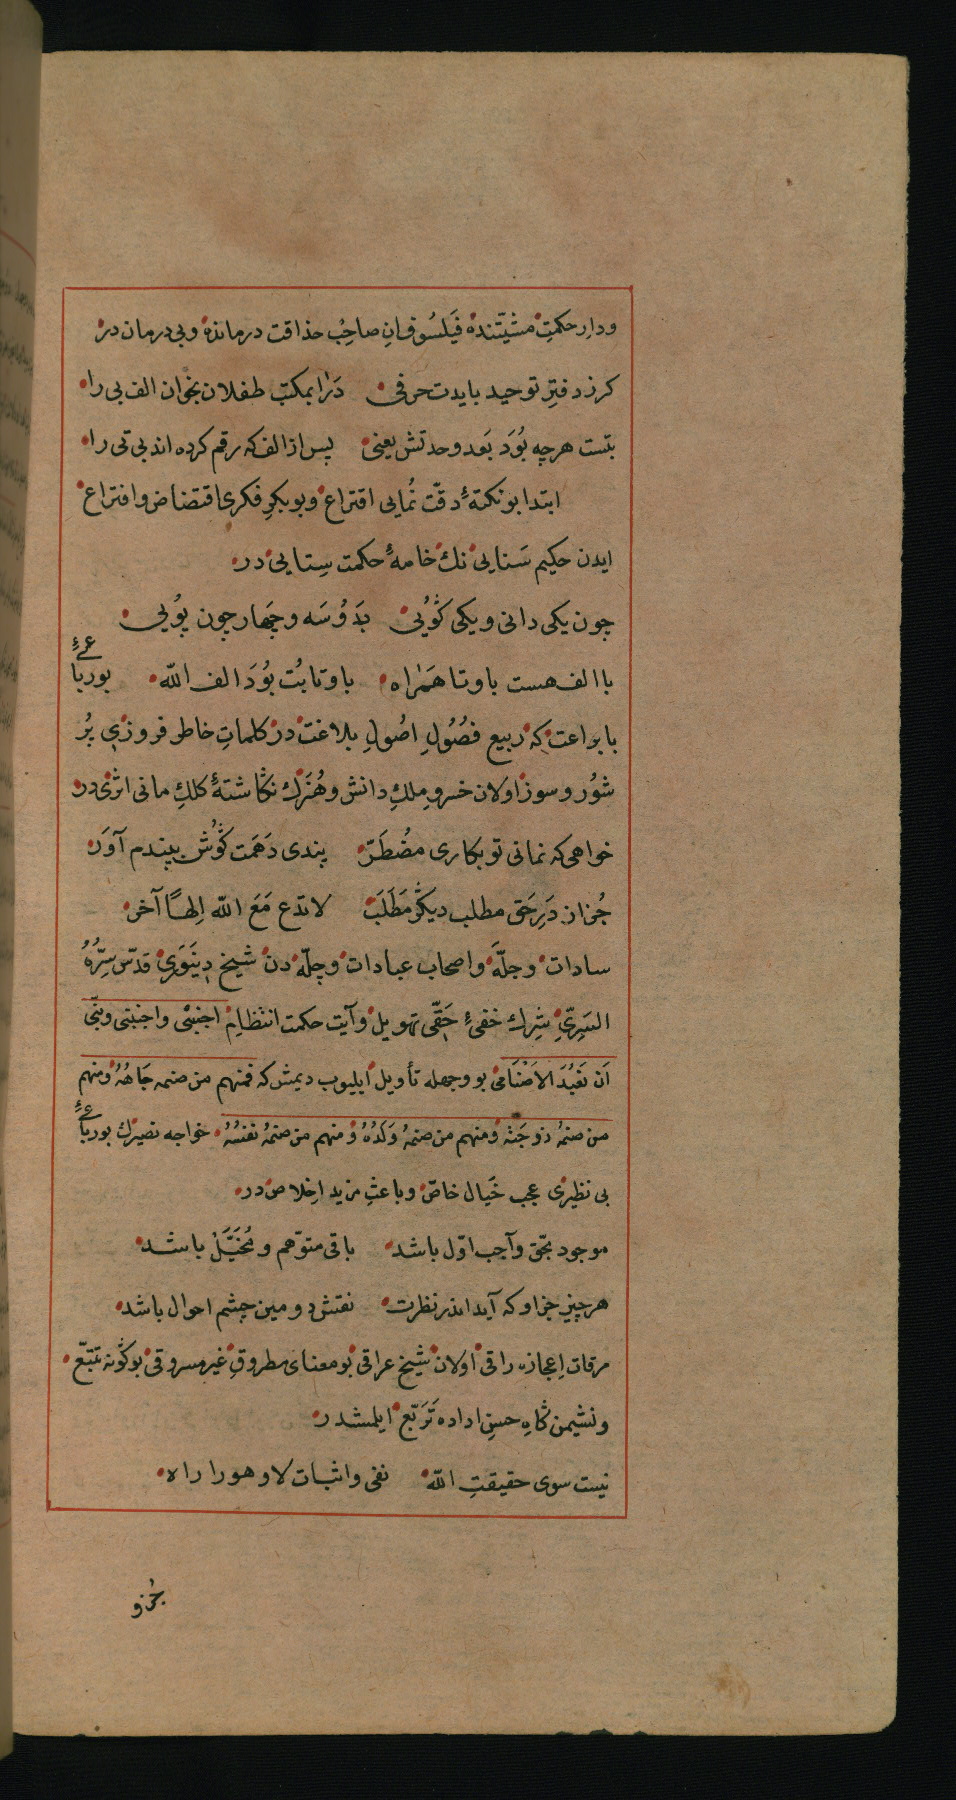 ودارِ حكمتِ مشيّتنده فَيلسُوفانِ صاحِبْ حذاقت درمانده وبى درمان در
كرز دفترِ توحيد بايدت حرفى دَرْا بمكتبِ طفلان بخوان الف بى را
بتست هرچه بُوَد بَعد وحدتش يعنى پس از الف كه رقم كرده اند بى تى را
ابتدا بو نكتهٔ دقّت نُمايى اقتراع وبو بكرِ فكرى اقتضاض وافتراع
ايدن حكيم سَنايى نك خامهٔ حكمت سِتايى در
چون يكى دانى ويكى كُويى بدُو وسَه وچَهار چون پُويى
با الف هست با وتا هَمراه با وتا بُت بُوَد الف اللّه بو رباعئ
با براعت كه ربيع فصُولِ اصُولِ بلاغت در كلماتِ خاطر فروزى پُر
شوُر وسوز اولان خسروِ ملكِ دانش وهُنَرك نكاشتهٔ كلكِ مانى اثرى در
خواهى كه نمانى تو بكارى مضُطَرّ پندى دَهَمت كُوش بپندم آوَر
جُز از دَرِ حَق مطلب ديكر مَطلَبْ لا تدع مَعَ اللّه اِلهًا آخر
سادات وجلّه واصحاب عبادات وچلّه دن شيخ دِينَوَرى قدّس سِرُّهُ
السَرِىّ شِرك خفىِٔ حَقّى تهويل وآيت حكمت انتظام اجنبنى واجنبنى وبنىّ
اَن نَعْبُدَ الاَصْنَامَ بو وجهله تأويل ايليوب ديمش كه فمنهم من صنمه جَاهُهُ ومنهم
من صنمهُ زوجَته ومنهم من صنمهُ وَلَدُهُ ومنهم من صنمهُ نفسُهُ خواجه نصيرك بو رباعئ
بى نظيرى عجب خَيال خاصّ وباعثِ مزيد اخلاص در
موجود بحَق وآجب اوّل باشد باقى متوّهم ومُخَيَّل باشد
هر چيز جز او كه آيد اندر نظرت نقش دومين چشم احوال باشد
مرقات اِعجازه راقى اولان شيخ عراقى بو معناى مطروقِ غير مسروقى بو كونه تتبّع
ونشيمن كاهِ حسنِ اداده تَرَبّع ايلمشدر
نيست سوى حقيقتِ اللّه نفى واثبات لا وهو را راه
جُز و